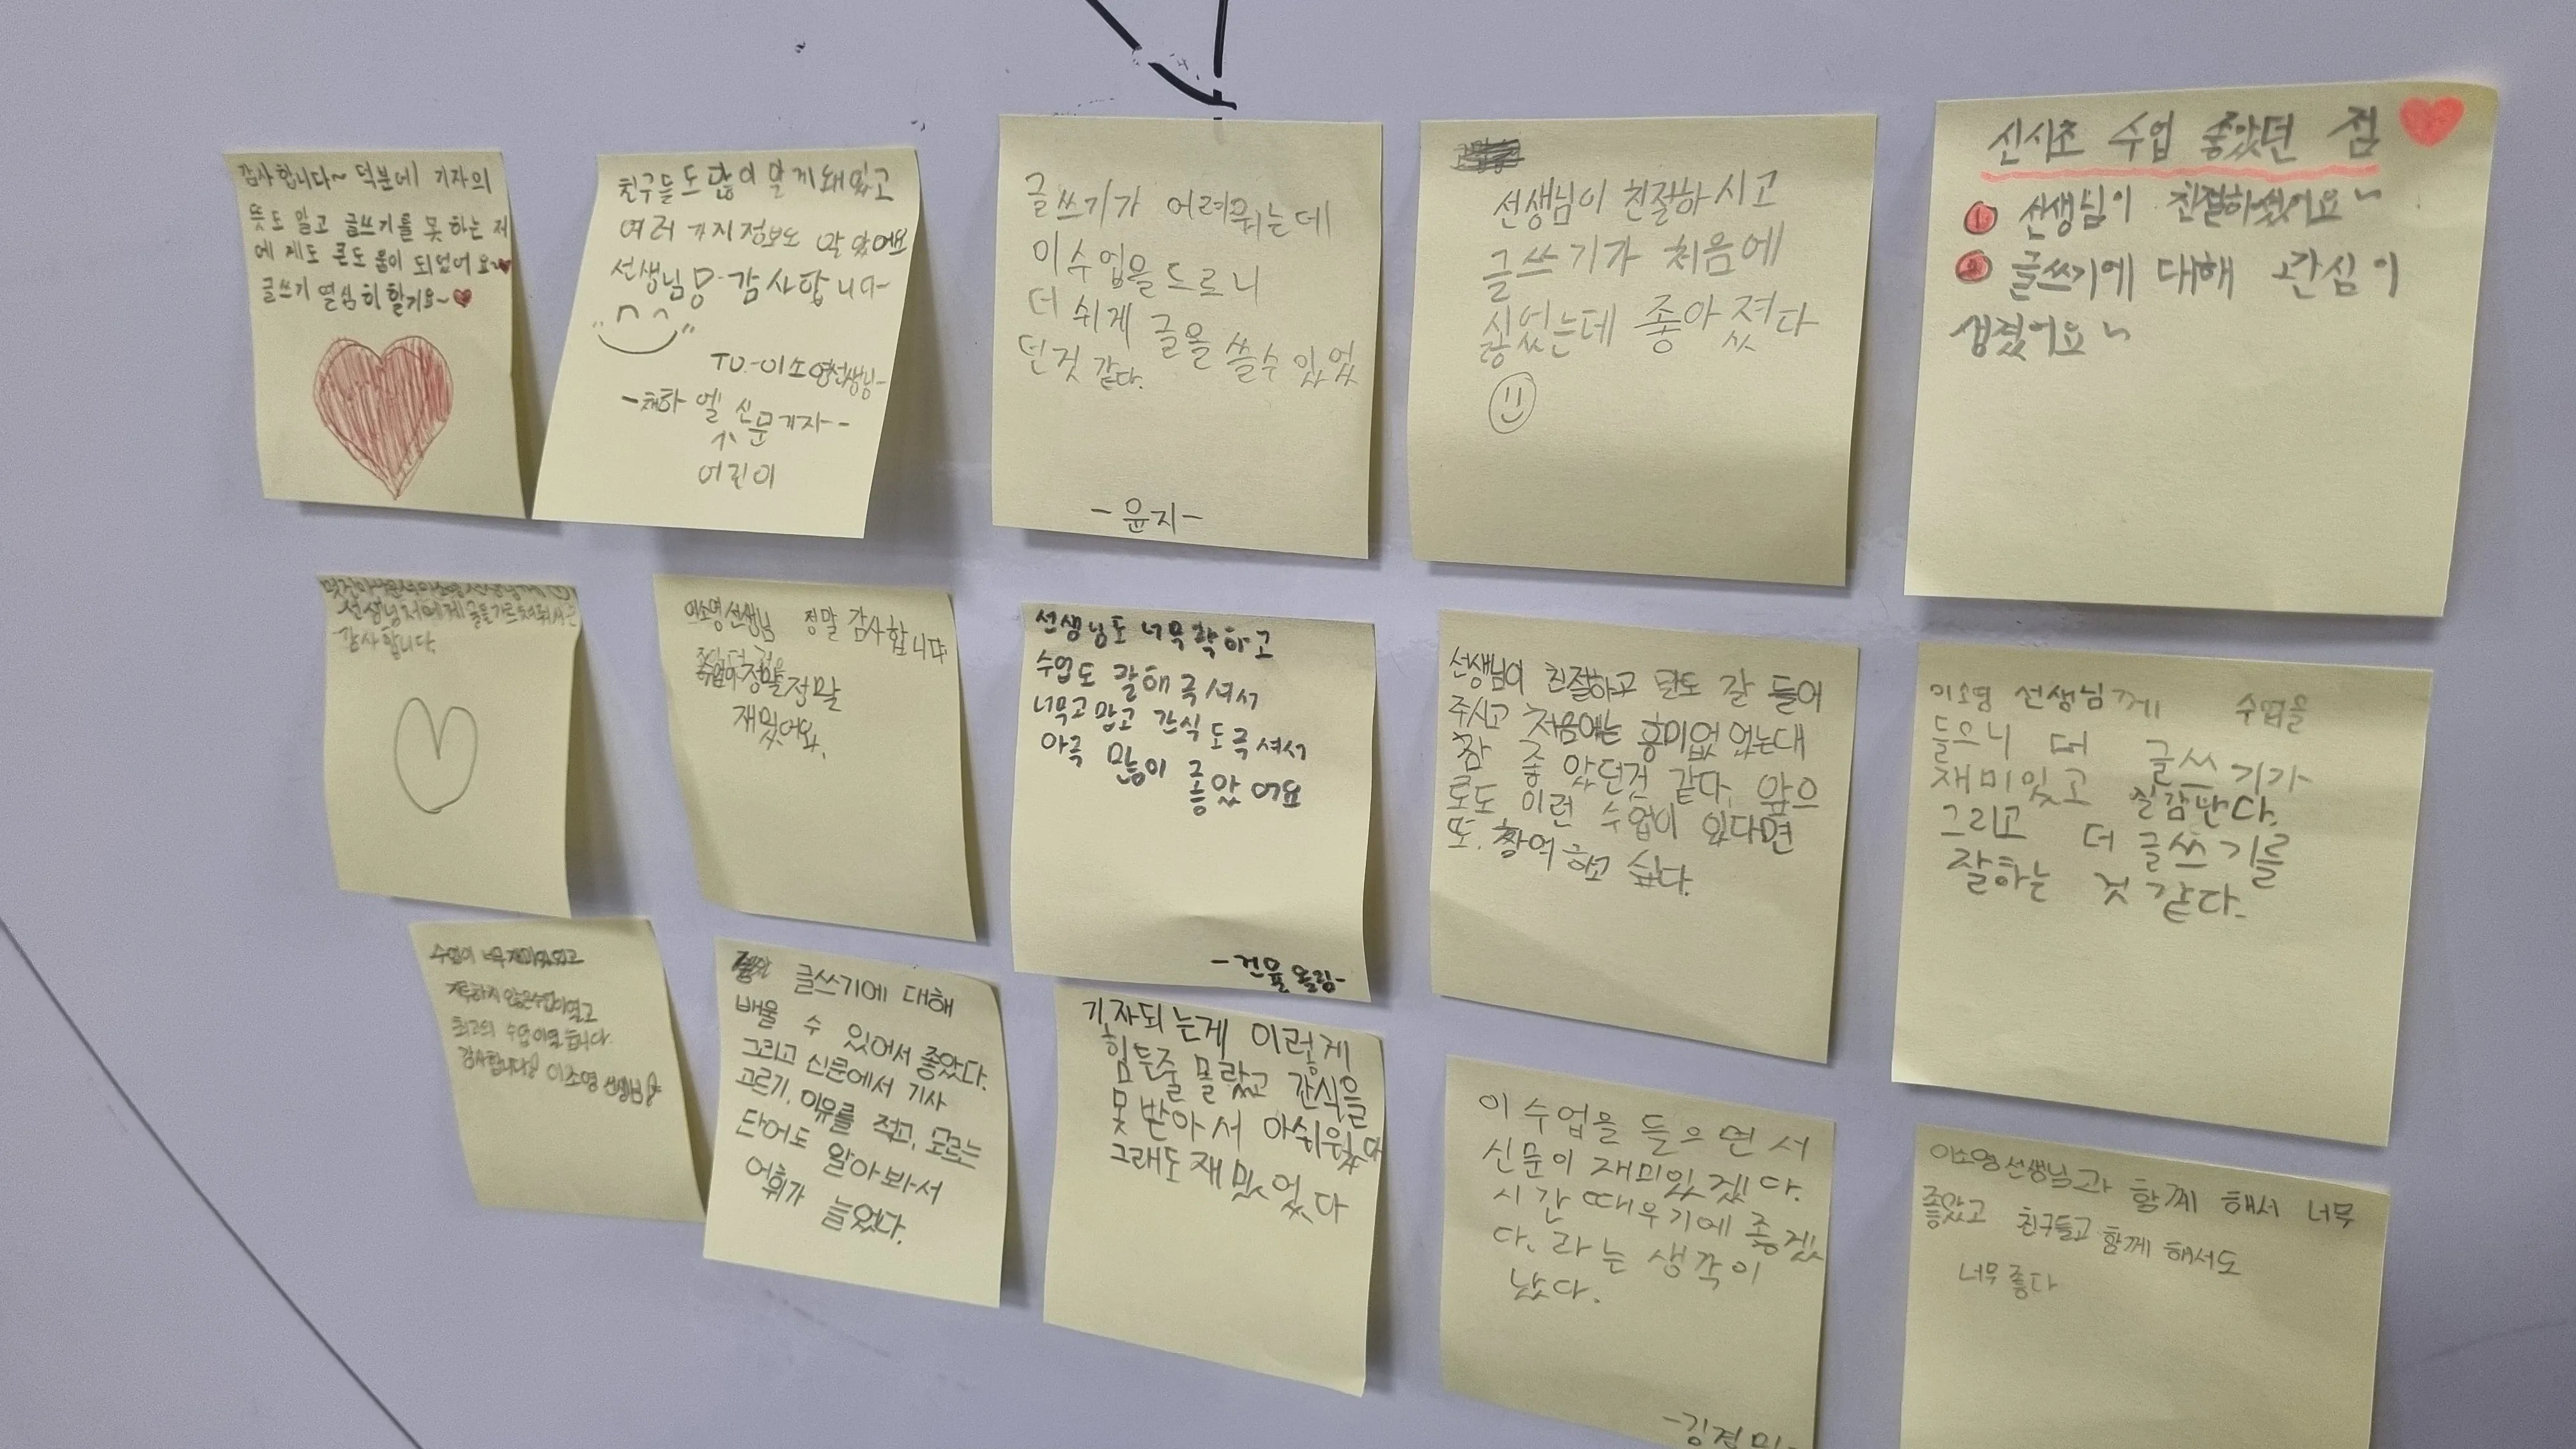 감사합니다~ 덕분에 기자의
뜻도 알고 글쓰기를 못 하는 저
에게도 큰도움이 되었어요~
글쓰기 열심히 할게요~
친구들도 많이 알게돼있고
여러 가지정보도 알았어요
선생님 감사합니다-
TO.-이소영선생님-
-채하엘 신문기자--
어린이
글쓰기가 어려웠는데
이수업을 드르니
더 쉬게 글을 쓸수 있었
던것 같다.
-윤지-
선생님이 친절하시고
글쓰기가 처음에
싫었는데 좋아졌다
신시초 수업 좋았던 점
① 선생님이 친절하셨어요~
② 글쓰기에 대해 관심이
생겼어요~
선생님저에게글을가르쳐줘서
감사합니다.
이소영선생님 정말 감사합니다
정말정말
재밌어요.
선생님도 너무착하고
수업도 잘해주셔서
너무고맙고 간식도주셔서
아주 많이 좋았어요
-건율올림-
선생님이 친절하고 말도 잘 들어
주시고 처음에는 흥미없었는대
참 좋았던것 같다. 앞으
로도 이런 수업이 있다면
또. 참여하고 싶다.
이소영 선생님께 수업을
들으니 더 글쓰기가
재미있고 실감난다.
그리고 더 글쓰기를
잘하는 것 같다.
수업이 너무재미있었고
지루하지 않은수업이였고
최고의 수업이였습니다.
감사합니다 이소영 선생님
글쓰기에 대해
배울 수 있어서 좋았다.
그리고 신문에서 기사
고르기, 이유를 적고, 모르는
단어도 알아봐서
어휘가 늘었다.
기자되는게 이렇게
힘든줄 몰랐고 간식을
못받아서 아쉬웠다
그래도재밌었다
이수업을 들으면서
신문이 재미있겠다.
시간때우기에 좋겠
다. 라는 생각이
났다.
이소영선생님과 함께 해서 너무
좋았고 친구들고 함께 해서도
너무좋다